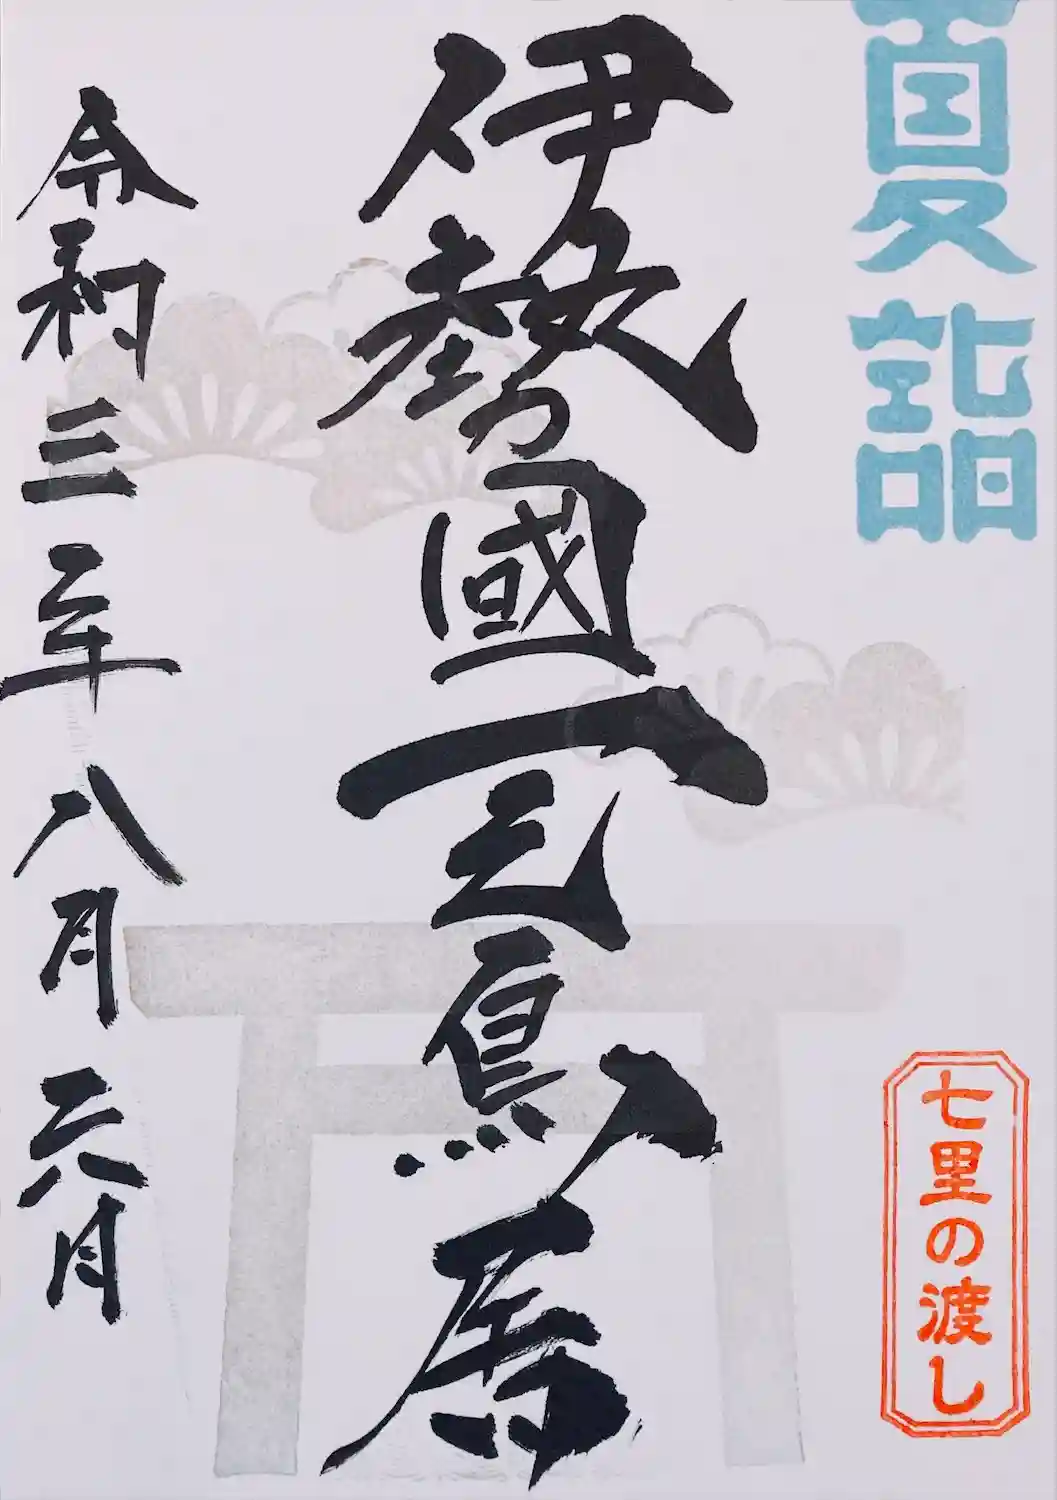 夏詣
七里の渡し
伊勢國一之鳥居
令和三年八月六日